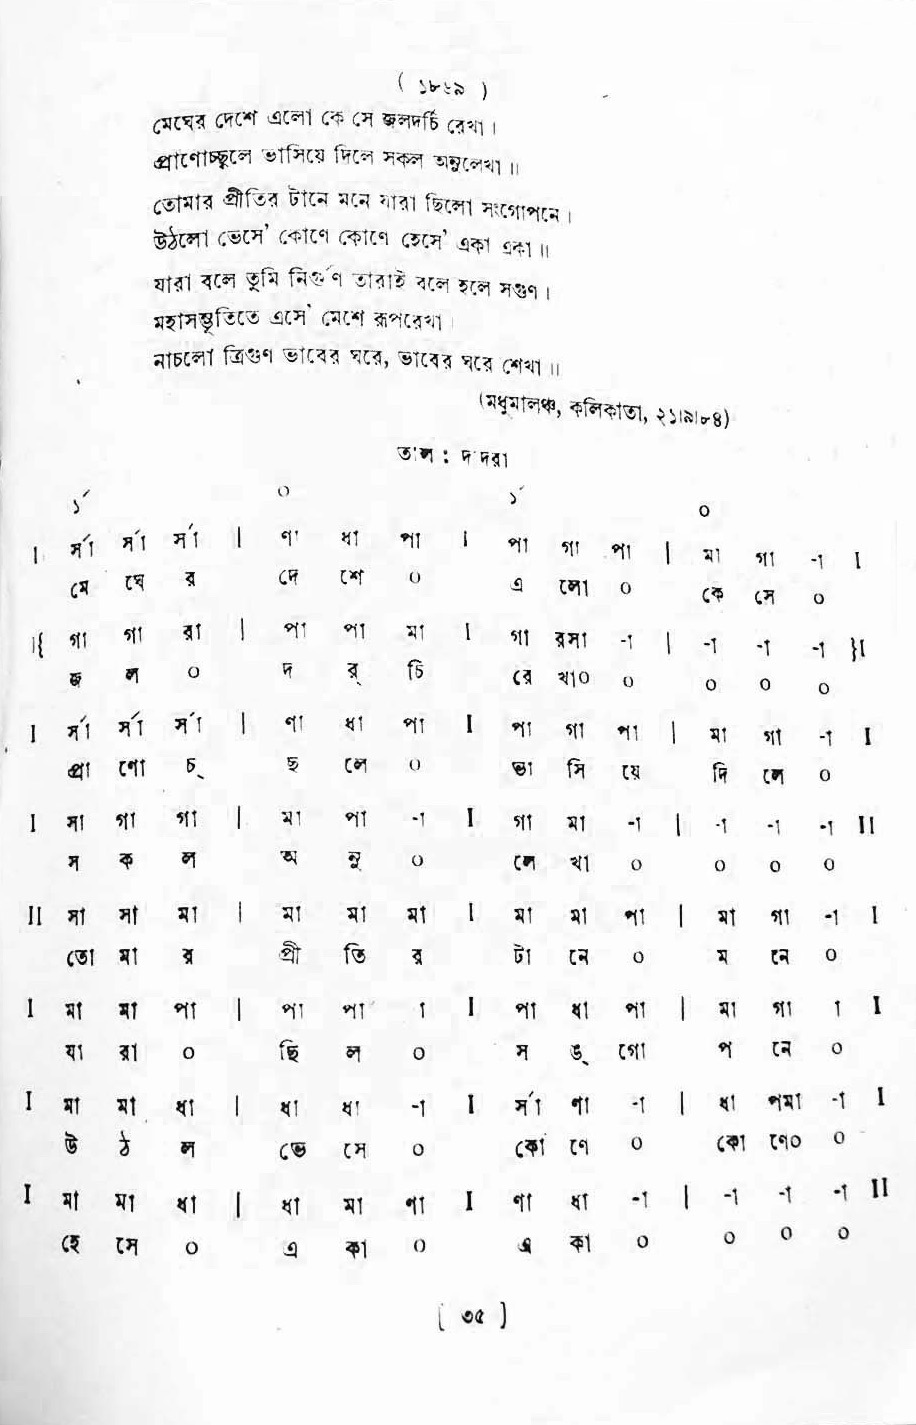 ( ১৮৬৯ )
মেঘের দেশে এলো কে সে জলদর্চি রেখা।
প্রাণোচ্ছলে ভাসিয়ে দিলে সকল অনুলেখা॥
তোমার প্রীতির টানে মনে যারা ছিলো সংগোপনে।
উঠলো ভেসে' কোণে কোণে হেসে' একা একা॥
যারা বলে তুমি নির্গুণ তারাই বলে হলে সগুণ।
মহাসম্ভূতিতে এসে' মেশে রূপরেখা।
নাচলো ত্রিগুণ ভাবের ঘরে, ভাবের ঘরে শেখা॥
(মধুমালঞ্চ, কলিকাতা, ২১।৯।৮৪)
তাল : দাদরা
১´ ০ ১´ ০
I র্সা র্সা র্সা | ণা ধা পা I পা গা পা | মা গা -া I
মে ঘে র দে শে ০ এ লো ০ কে সে ০
I{ গা গা রা | পা পা মা I গা রসা -া | -া -া -া }I
জ ল ০ দ র্ চি রে খা০ ০ ০ ০ ০
I র্সা র্সা র্সা | ণা ধা পা I পা গা পা | মা গা -া I
প্রা ণো চ্ ছ লে ০ ভা সি য়ে দি লে ০
I সা গা গা | মা পা -া I গা মা -া | -া -া -া II
স ক ল অ নু ০ লে খা ০ ০ ০ ০
II সা সা মা | মা মা মা I মা মা পা | মা গা -া I
তো মা র প্রী তি র টা নে ০ ম নে ০
I মা মা পা | পা পা া I পা ধা পা | মা গা া I
যা রা ০ ছি ল ০ স ঙ্ গো প নে ০
I মা মা ধা | ধা ধা -া I র্সা ণা -া | ধা পমা -া I
উ ঠ ল ভে সে ০ কো ণে ০ কো ণে০ ০
I মা মা ধা | ধা মা ণা I ণা ধা -া | -া -া -া II
হে সে ০ এ কা ০ এ কা ০ ০ ০ ০
[ ৩৫ ]